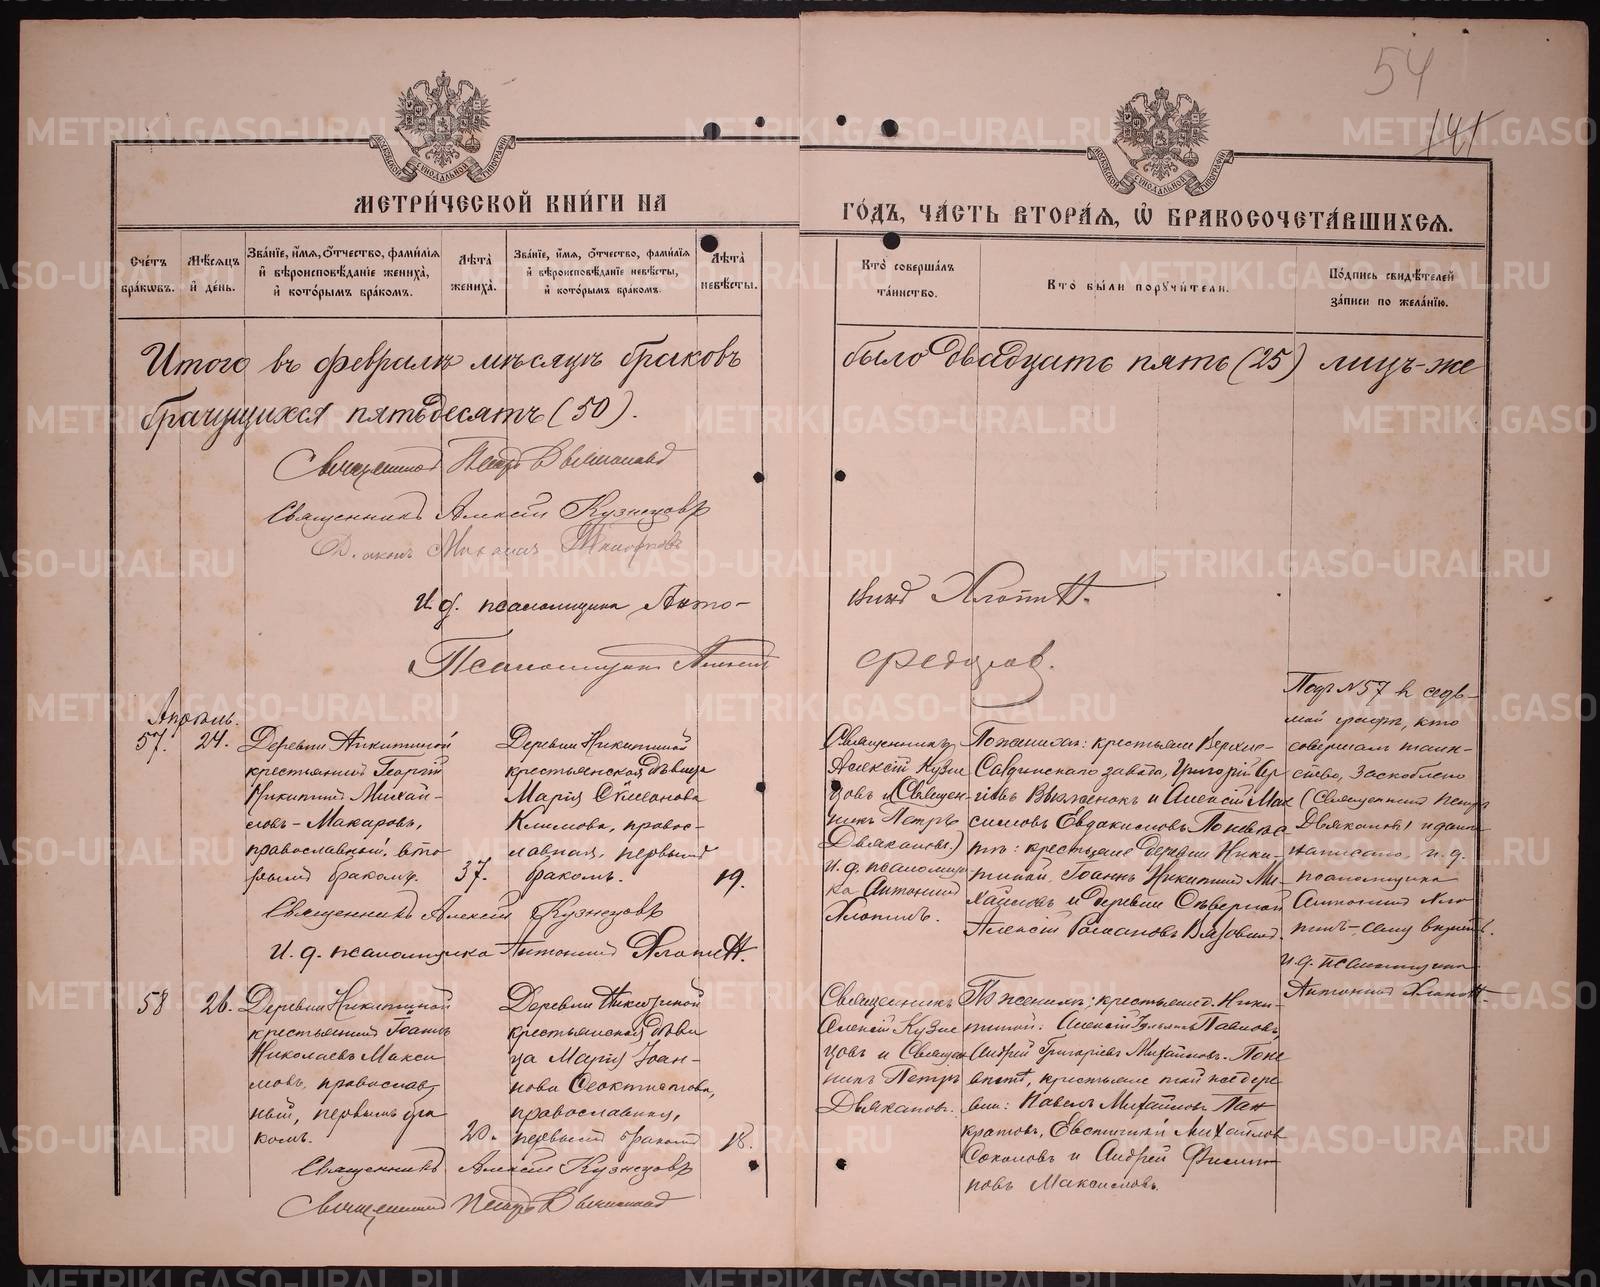 54
141
МОСКОВСКОЙ СѴНОДАЛЬНОЙ ТИПОГРАФІИ
МОСКОВСКОЙ СѴНОДАЛЬНОЙ ТИПОГРАФІИ
МЕТРИ́ЧЕСКОЙ КНИ́ГИ НА
ГО́ДЪ, ЧА́СТЬ ВТОРА́Ѧ, Ѡ҆ БРАКОСОЧЕТА́ВШИХСѦ.
Сче́тъ бра́кѡвъ.
Мѣ́сяцъ и҆ де́нь.
Зва́нїе, и҆́мѧ, ѻ҆́тчество, фами́лїѧ и҆ вѣроисповѣ́данїе жениха̀, и҆ кото́рымъ бра́комъ.
Лѣ́та жениха̀.
Зва́нїе, и҆́мѧ, ѻ҆́тчество, фами́лїѧ и҆ вѣроисповѣ́данїе невѣ́сты, и҆ кото́рымъ бра́комъ.
Лѣ́та невѣ́сты.
Кто̀ соверша́лъ та́инство.
Кто̀ бы́ли порꙋчи́тели.
По́дпись свидѣ́телей за́писи по жела́нїю.
Итого въ февралѣ мѣсяцѣ браковъ было двадцать пять (25) лицъ-же
брачущихся пятьдесятъ (50).
Священникъ Петръ Дьяконовъ
Священникъ Алексѣй Кузнецовъ
Діаконъ Михаилъ
И. д. псаломщика Анто-
ній Хлопинъ.
Псаломщикъ Алексѣй
Федоров.
Апрѣль.
57. 24.
Деревни Никитиной
крестьянинъ Георгій
Никитинъ Михай-
ловъ-Макаровъ,
православный, вто-
рымъ бракомъ.
37.
Деревни Никитиной
крестьянская дѣвица
Марія Симонова
Климова, правос-
лавная, первымъ
бракомъ.
19.
Священникъ
Алексѣй Кузне
цовъ и (Священ-
никъ Петръ
Дьяконовъ)
и. д. псаломщи
ка Антоній
Хлопинъ.
По женихѣ: крестьяне Верхне-
Салдинскаго завода, Григорій Сер
гѣевъ и Алексѣй Мак
симовъ Евдокимовъ. По невѣс
тѣ: крестьяне деревни Ники-
тиной, Іоаннъ Никитинъ Ми-
хайловъ и деревни Сѣверной
Алексѣй Романовъ
Подъ № 57 въ седь-
мой графѣ, кто
совершалъ таин-
ство, заскоблено
(Священникъ Петръ
Дьяконовъ) и
написано, и. д.
псаломщика
Антоній Хло
пинъ-сему вѣрить.
И. д. псаломщика
Антоній Хлопинъ.
Священникъ Алексѣй Кузнецовъ
И. д. псаломщика Антоній Хлопинъ.
58 26.
Деревни Никитиной
крестьянинъ Іоаннъ
Николаевъ Макси
мовъ, православ
ный, первымъ бра
комъ.
20.
Деревни Никитиной
крестьянская дѣви
ца Марія Іоан-
нова Феоктистова,
православная,
первымъ бракомъ
18.
Священникъ
Алексѣй Кузне
цовъ и Священ
никъ Петръ
Дьяконовъ.
По женихѣ: крестьяне д. Ники-
тиной: Алексѣй Павловъ,
Андрей Григорьевъ Михайловъ. По не
вѣстѣ, крестьяне той же дере
вни: Павелъ Михайловъ Пан
кратовъ, Евстигней Михайлов
Соколовъ и Андрей Филип
повъ Максимовъ.
Священникъ Алексѣй Кузнецовъ
Священникъ Петръ Дьяконовъ
METRIKI.GASO-URAL.RU